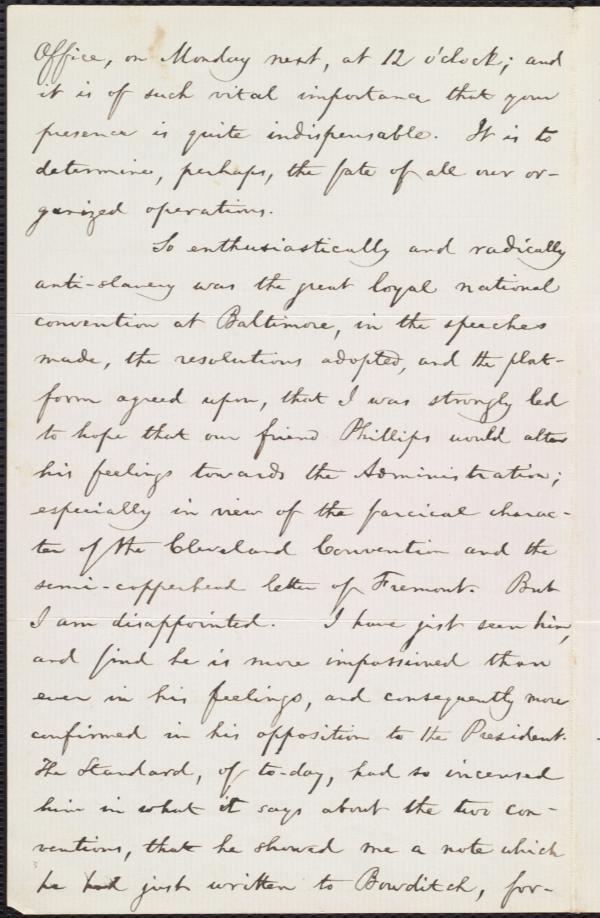 Office, on Monday next, at 12 o'clock; and
it is of such vital importance that your
presence is quite indispensable. It is to
determine, perhaps, the fate of all our or-
ganized operations.
So enthusiastically and radically
anti-slavery was the great loyal national
convention at Baltimore, in the speeches
made, the resolutions adopted, and the plat-
form agreed upon, that I was strongly led
to hope that our friend Phillips would alter
his feelings towards the Administration;
especially in view of the farcical charac-
ter of the Cleveland Convention and the
semi-copperhead letter of Fremont. But
I am disappointed. I have just seen him,
and find he is more impassioned than
ever in his feelings, and consequently more
confirmed in his opposition to the President.
The Standard, of to-day, had so incensed
him in what it says about the two con-
ventions, that he showed me a note which
he had just written to Bowditch, for-